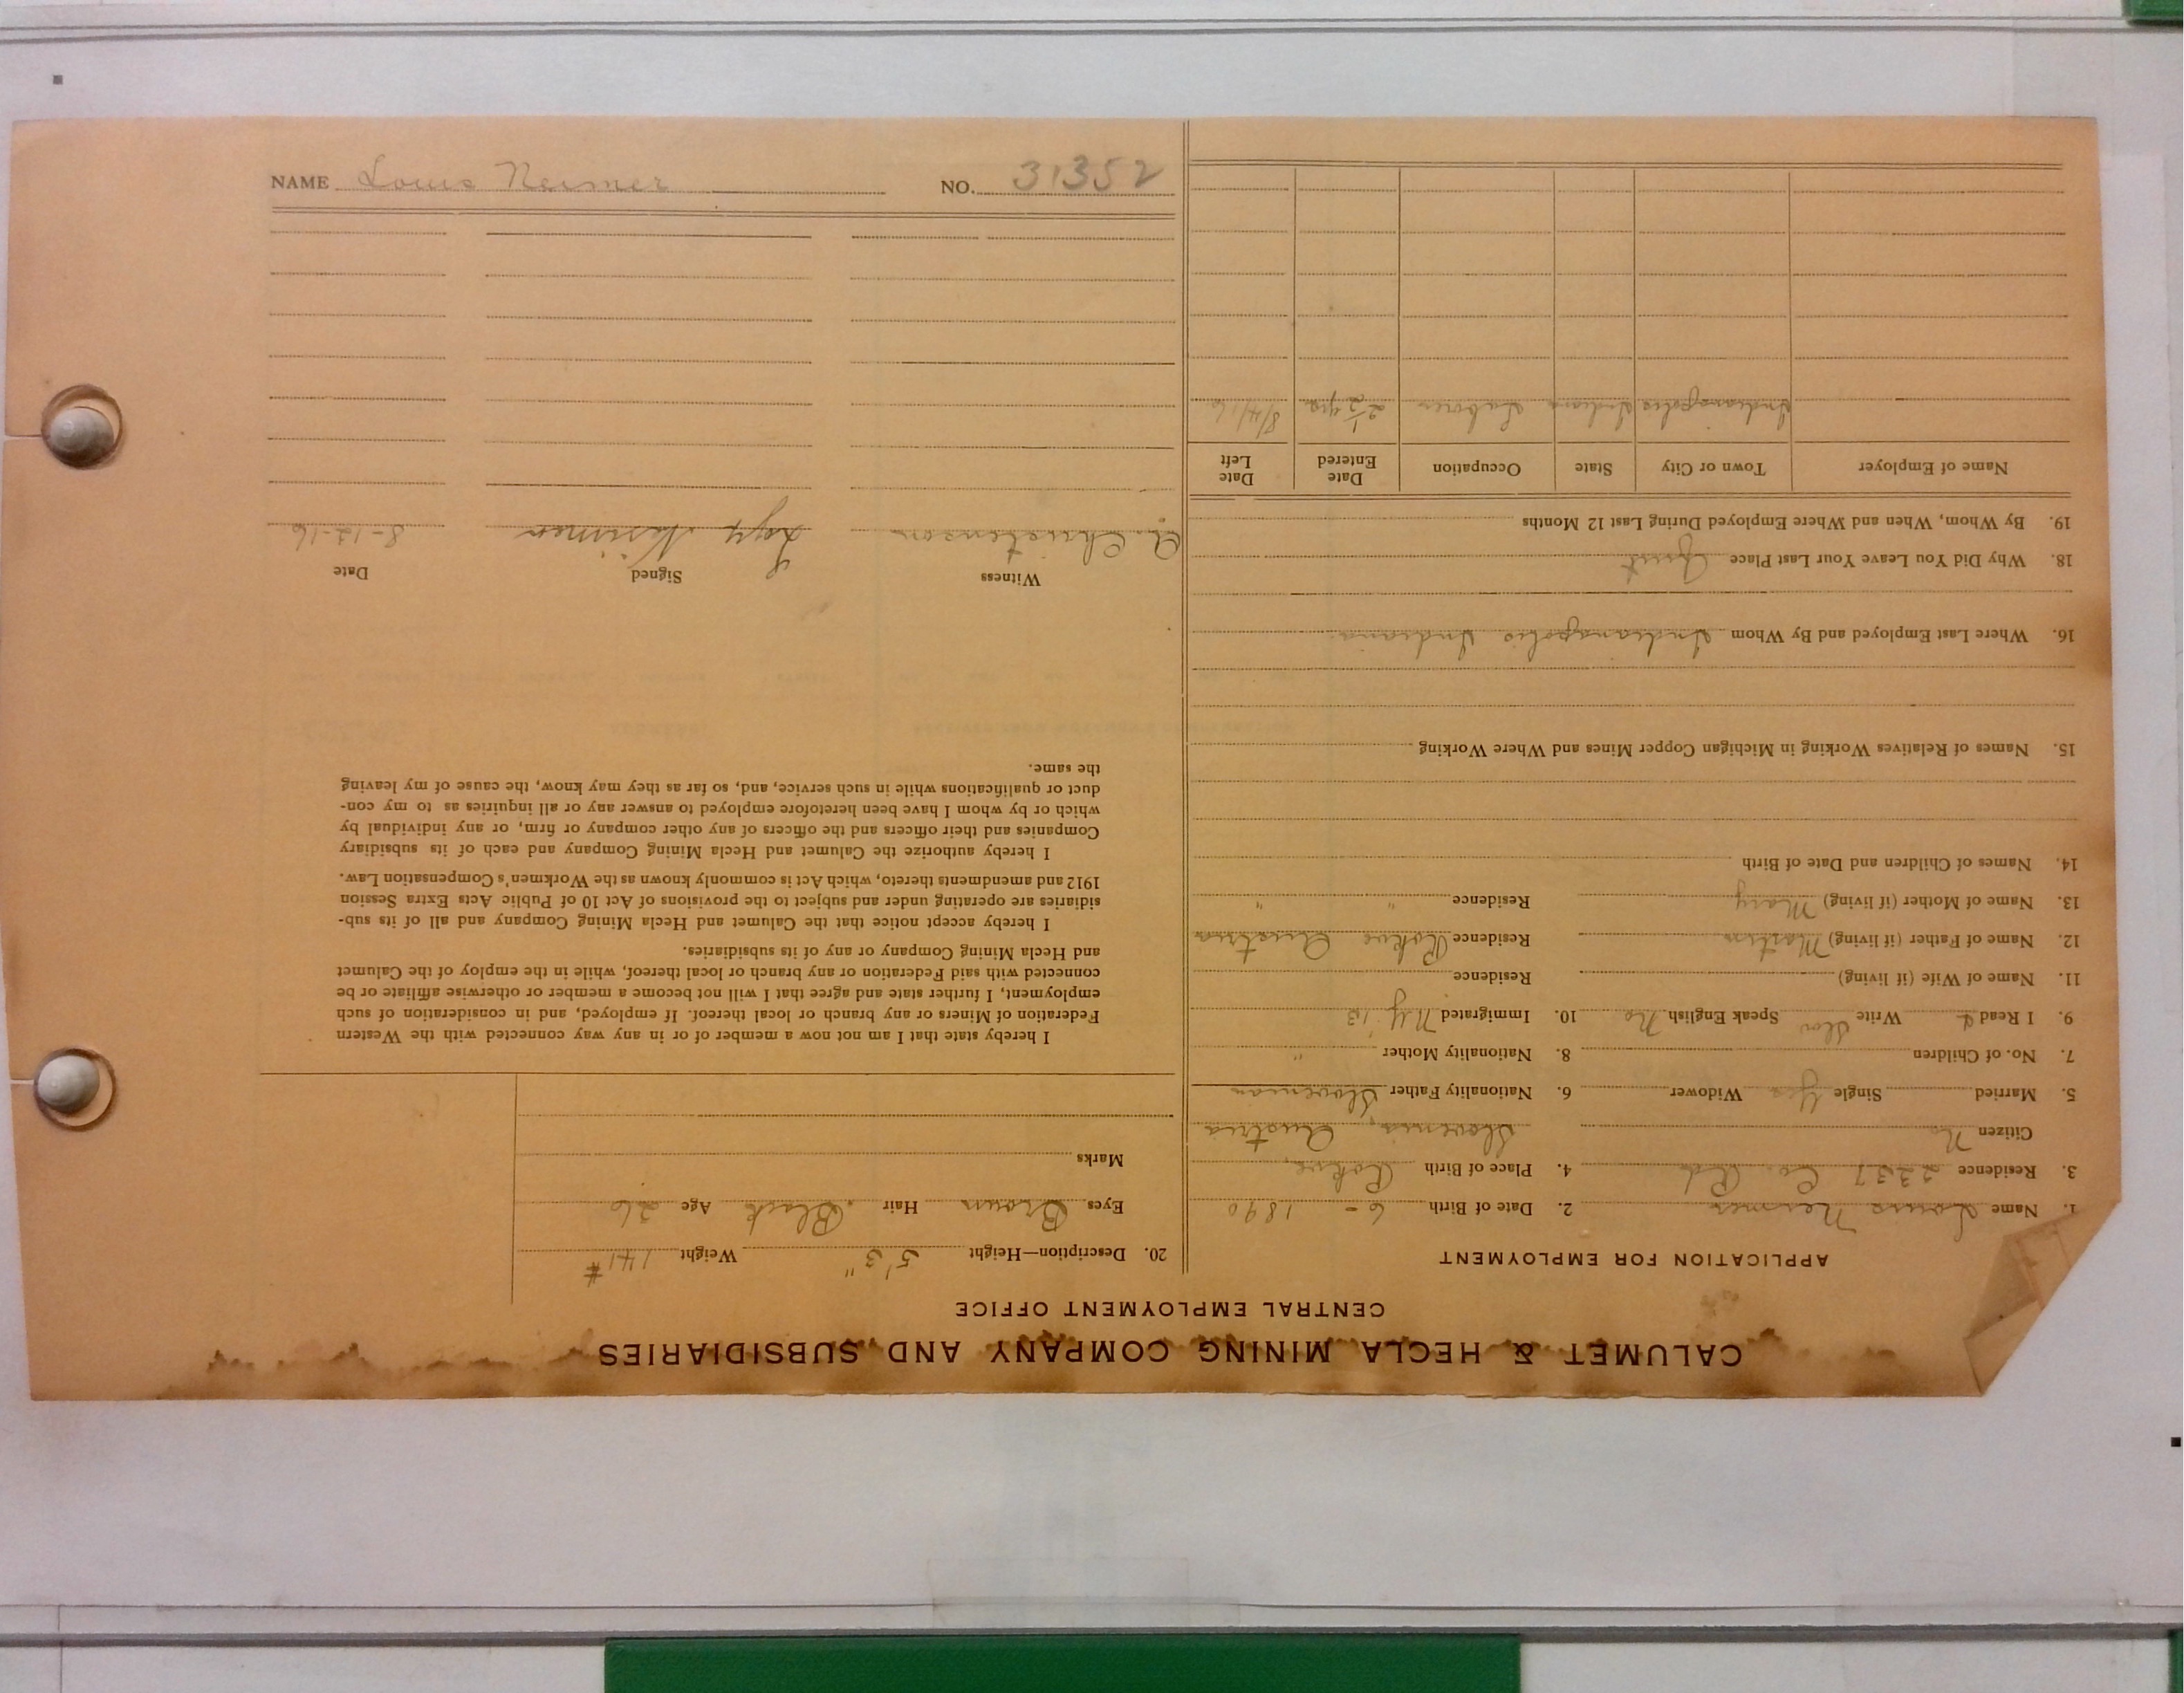 CALUMET & HECLA MINING COMPANY AND SUBSIDIARIES
CENTRAL EMPLOYMENT OFFICE
APPLICATION FOR EMPLOYMENT
1. Name Louis Neimer 2. Date of Birth 6 - 1890
3. Residence 2237 Co. Rd 4. Place of Birth Rokve,
Citizen No Slovenia, Austria
5. Married Single Yes Widower 6. Nationality Father Slovenian
7. No. of Children 8. Nationality Mother "
9. I Read & Write Slov Speak English No 10. Immigrated N.Y. '13
11. Name of Wife (if living) Residence
12. Name of Father (if living) Martin Residence Rokve Austria
13. Name of Mother (if living) Mary Residence " "
14. Names of Children and Date of Birth
15. Names of Relatives Working in Michigan Copper Mines and Where Working
16. Where Last Employed and By Whom Indianapolis Indiana
18. Why Did You Leave Your Last Place Quit
19. By Whom, When and Where Employed During Last 12 Months
Name of Employer Town or City State Occupation Date Entered Date Left
Indianapolis Indiana Laborer 2 1/2 yrs 8/4/16
20. Description—Height 5'3" Weight 141#
Eyes Brown Hair Black Age 26
Marks
I hereby state that I am not now a member of or in any way connected with the Western
Federation of Miners or any branch or local thereof. If employed, and in consideration of such
employment, I further state and agree that I will not become a member or otherwise affiliate or be
connected with said Federation or any branch or local thereof, while in the employ of the Calumet
and Hecla Mining Company or any of its subsidiaries.
I hereby accept notice that the Calumet and Hecla Mining Company and all of its sub-
sidiaries are operating under and subject to the provisions of Act 10 of Public Acts Extra Session
1912 and amendments thereto, which Act is commonly known as the Workmen's Compensation Law.
I hereby authorize the Calumet and Hecla Mining Company and each of its subsidiary
Companies and their officers and the officers of any other company or firm, or any individual by
which or by whom I have been heretofore employed to answer any or all inquiries as to my con-
duct or qualifications while in such service, and, so far as they may know, the cause of my leaving
the same.
Witness Signed Date
A. Christenson 8-12-16
NAME Louis Neimer NO. 31352